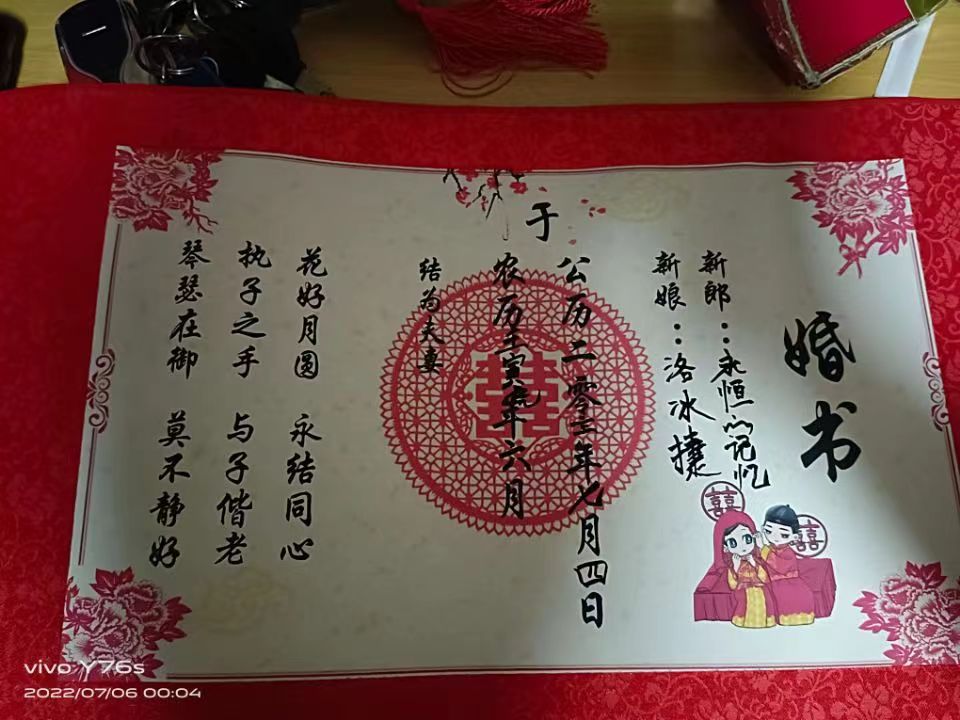 婚书
新郎：永恒的记忆
新娘：洛冰捷
于
公历二零二二年七月四日
农历壬寅虎年六月
结为夫妻
花好月圆 永结同心
执子之手 与子偕老
琴瑟在御 莫不静好
囍
囍
囍
vivo Y76s
2022/07/06 00:04